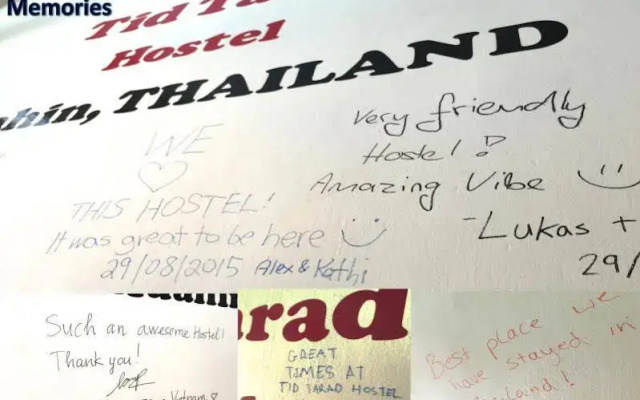 Memories
Tid Ta
Hostel
hin, THAILAND
WE
♡
THIS HOSTEL!
It was great to be here :)
29/08/2015 Alex & Kathi
Very friendly
Hostel!
Amazing Vibe :)
-Lukas +
29/
Such an awesome Hostel!
Thank you!
Vietnam ♡
arad
GREAT
TIMES AT
TID TARAD HOSTEL
Best place we
have stayed in